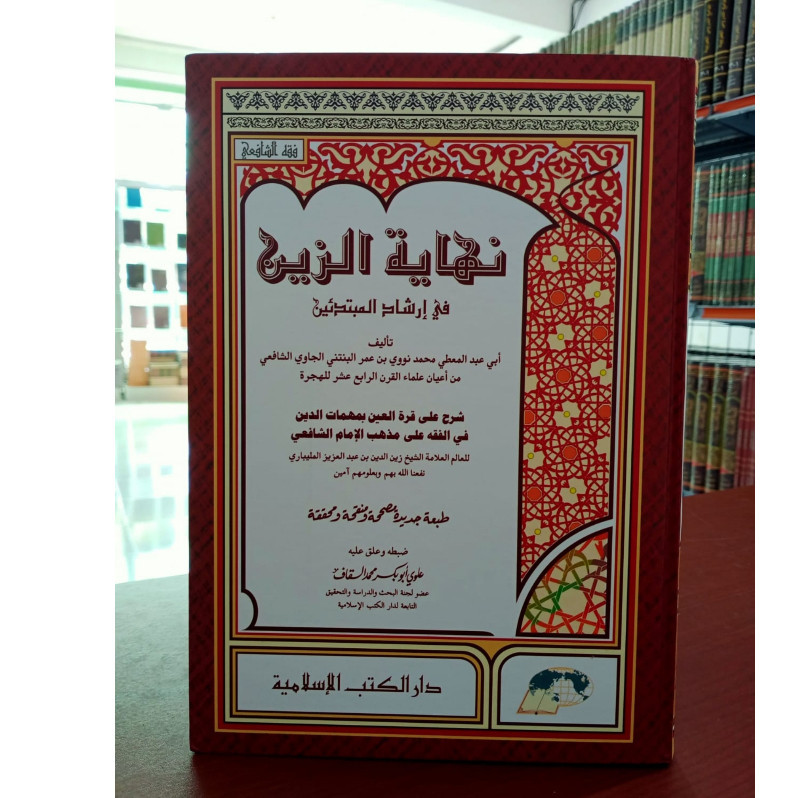 فقه الشافعي
نهاية الزين
في إرشاد المبتدئين
تأليف
أبي عبد المعطي محمد نووي بن عمر البنتني الجاوي الشافعي
من أعيان علماء القرن الرابع عشر للهجرة
شرح على قرة العين بمهمات الدين
في الفقه على مذهب الإمام الشافعي
للعالم العلامة الشيخ زين الدين بن عبد العزيز المليباري
نفعنا الله بهم وبعلومهم آمين
طبعة جديدة مصححة ومنقحة ومحققة
ضبطه وعلق عليه
علوي أبو بكر محمد السقاف
عضو لجنة البحث والدراسة والتحقيق
التابعة لدار الكتب الإسلامية
دار الكتب الإسلامية